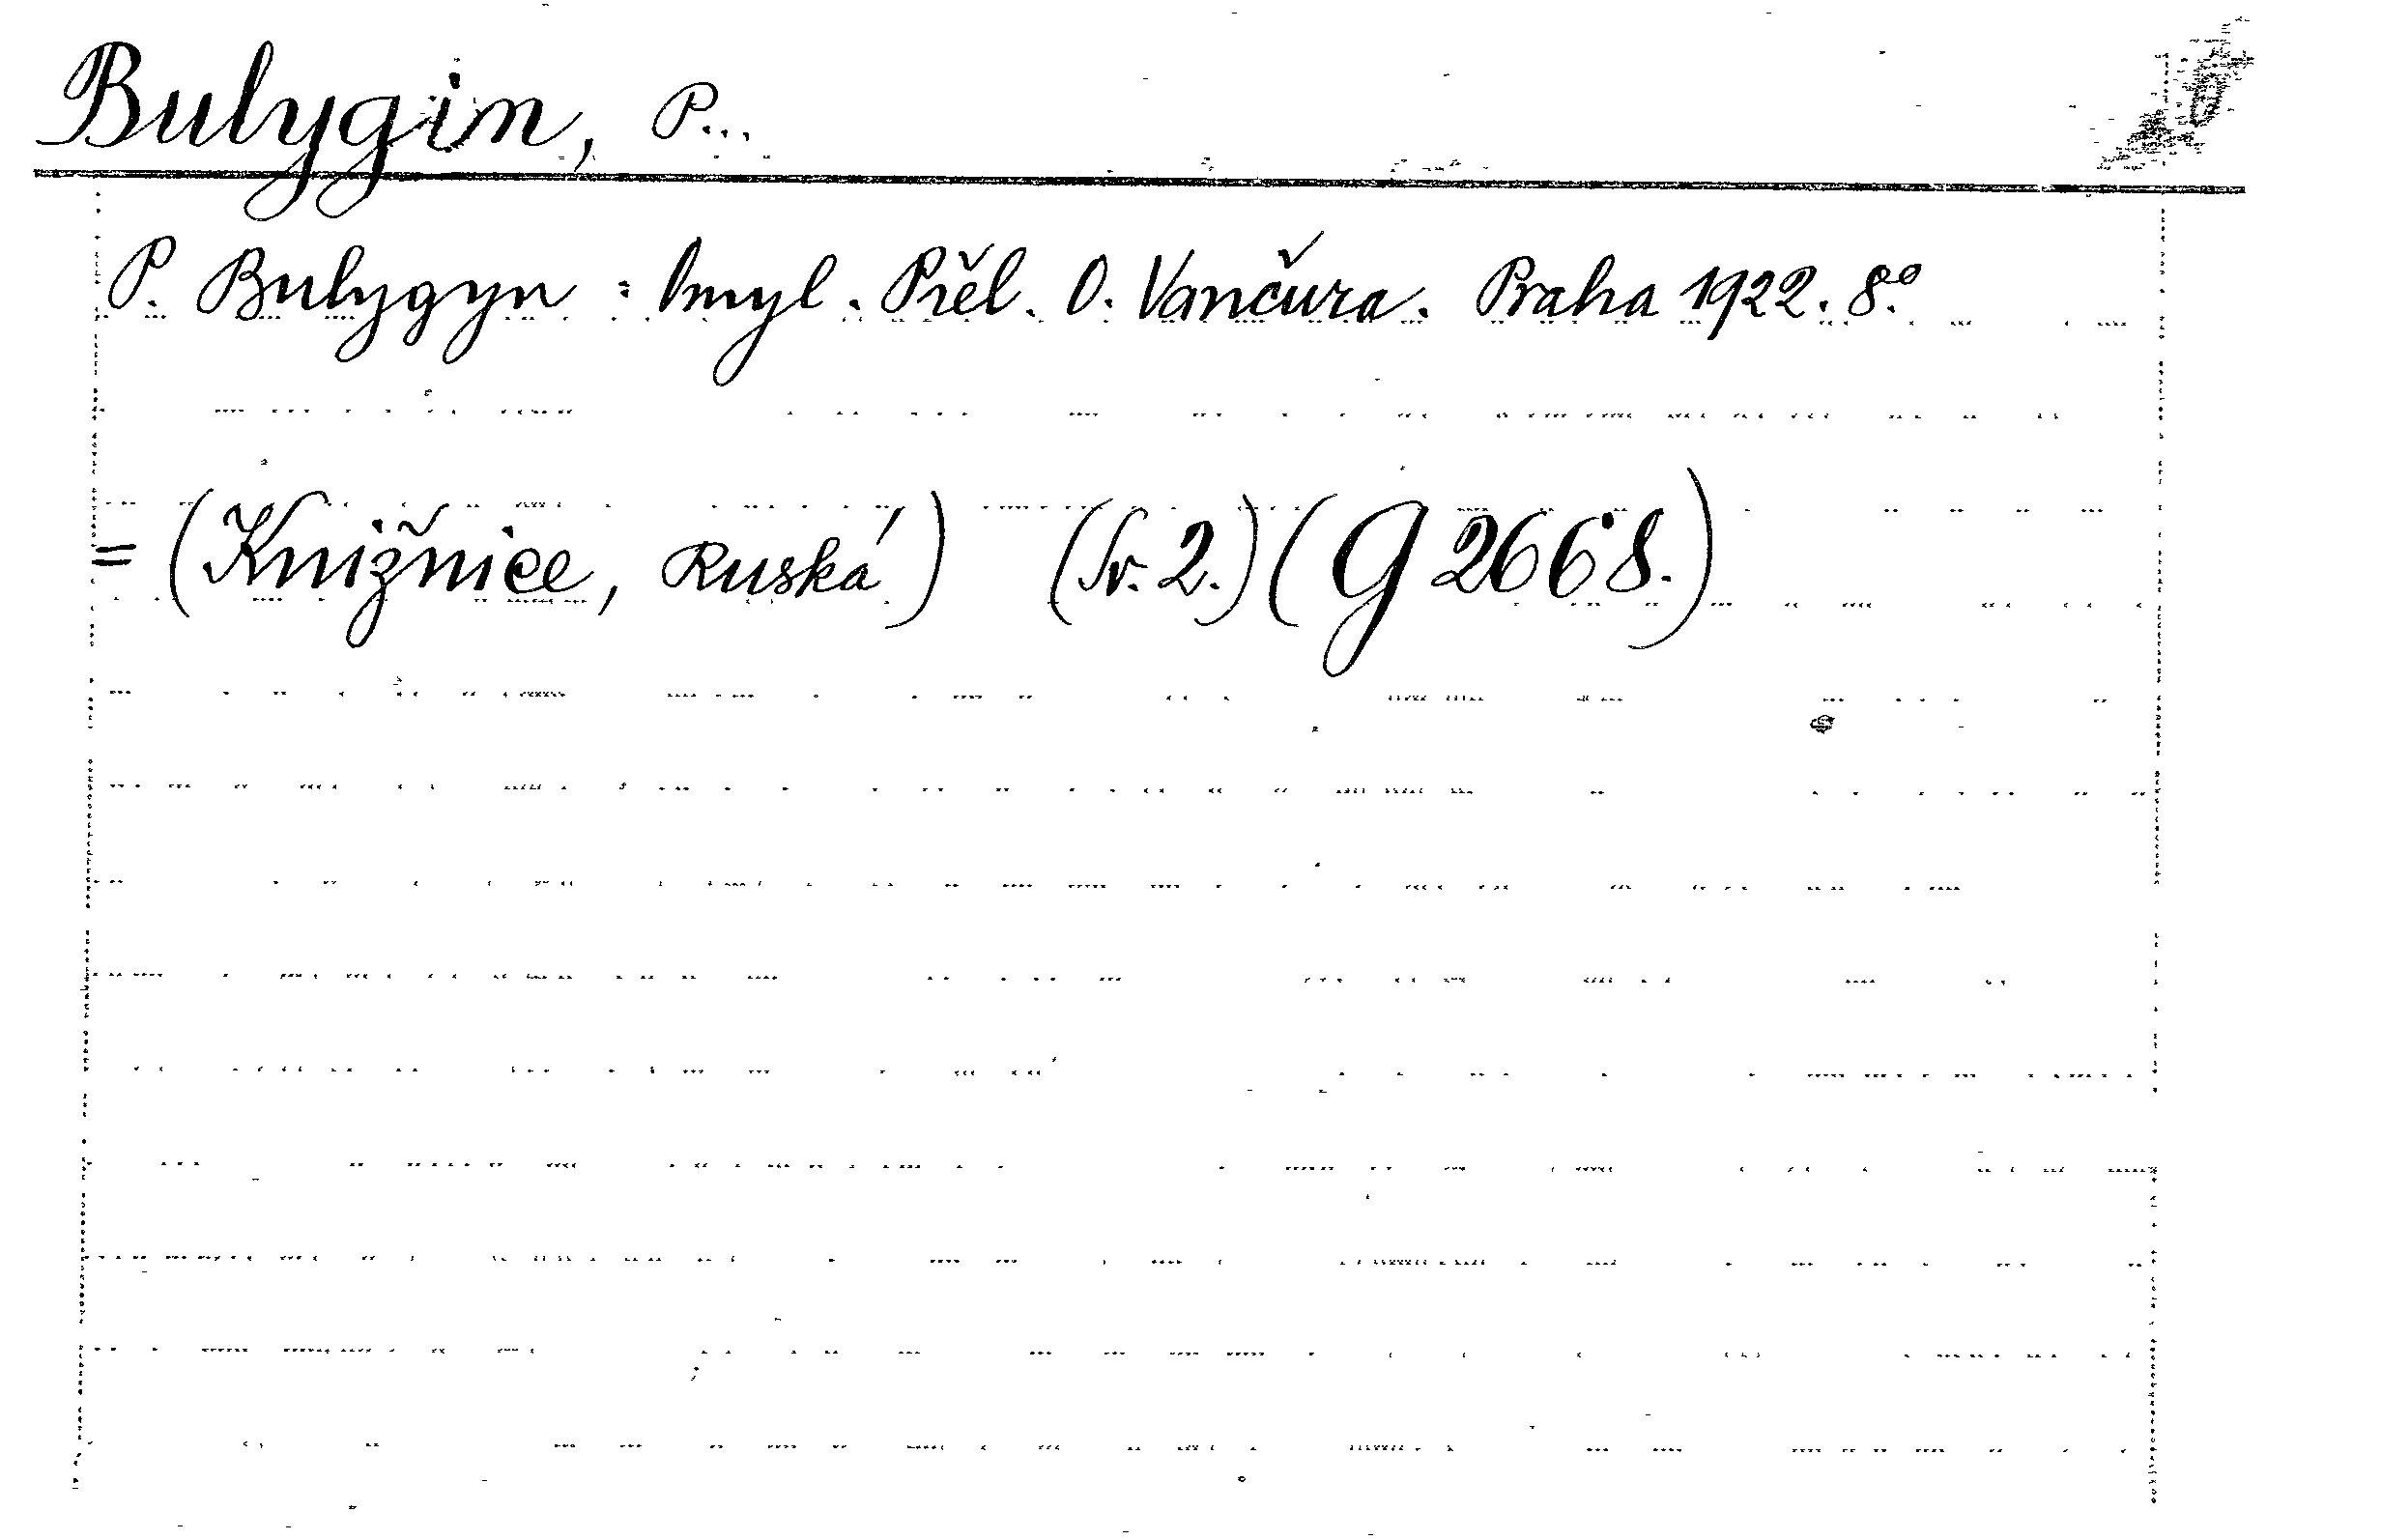 Bulygin, P...
P. Bulygyn: Omyl. Přel. O. Vančura. Praha 1922. 8°.
= (Knižnice, Ruská) (Sv. 2.) (G 2668.)